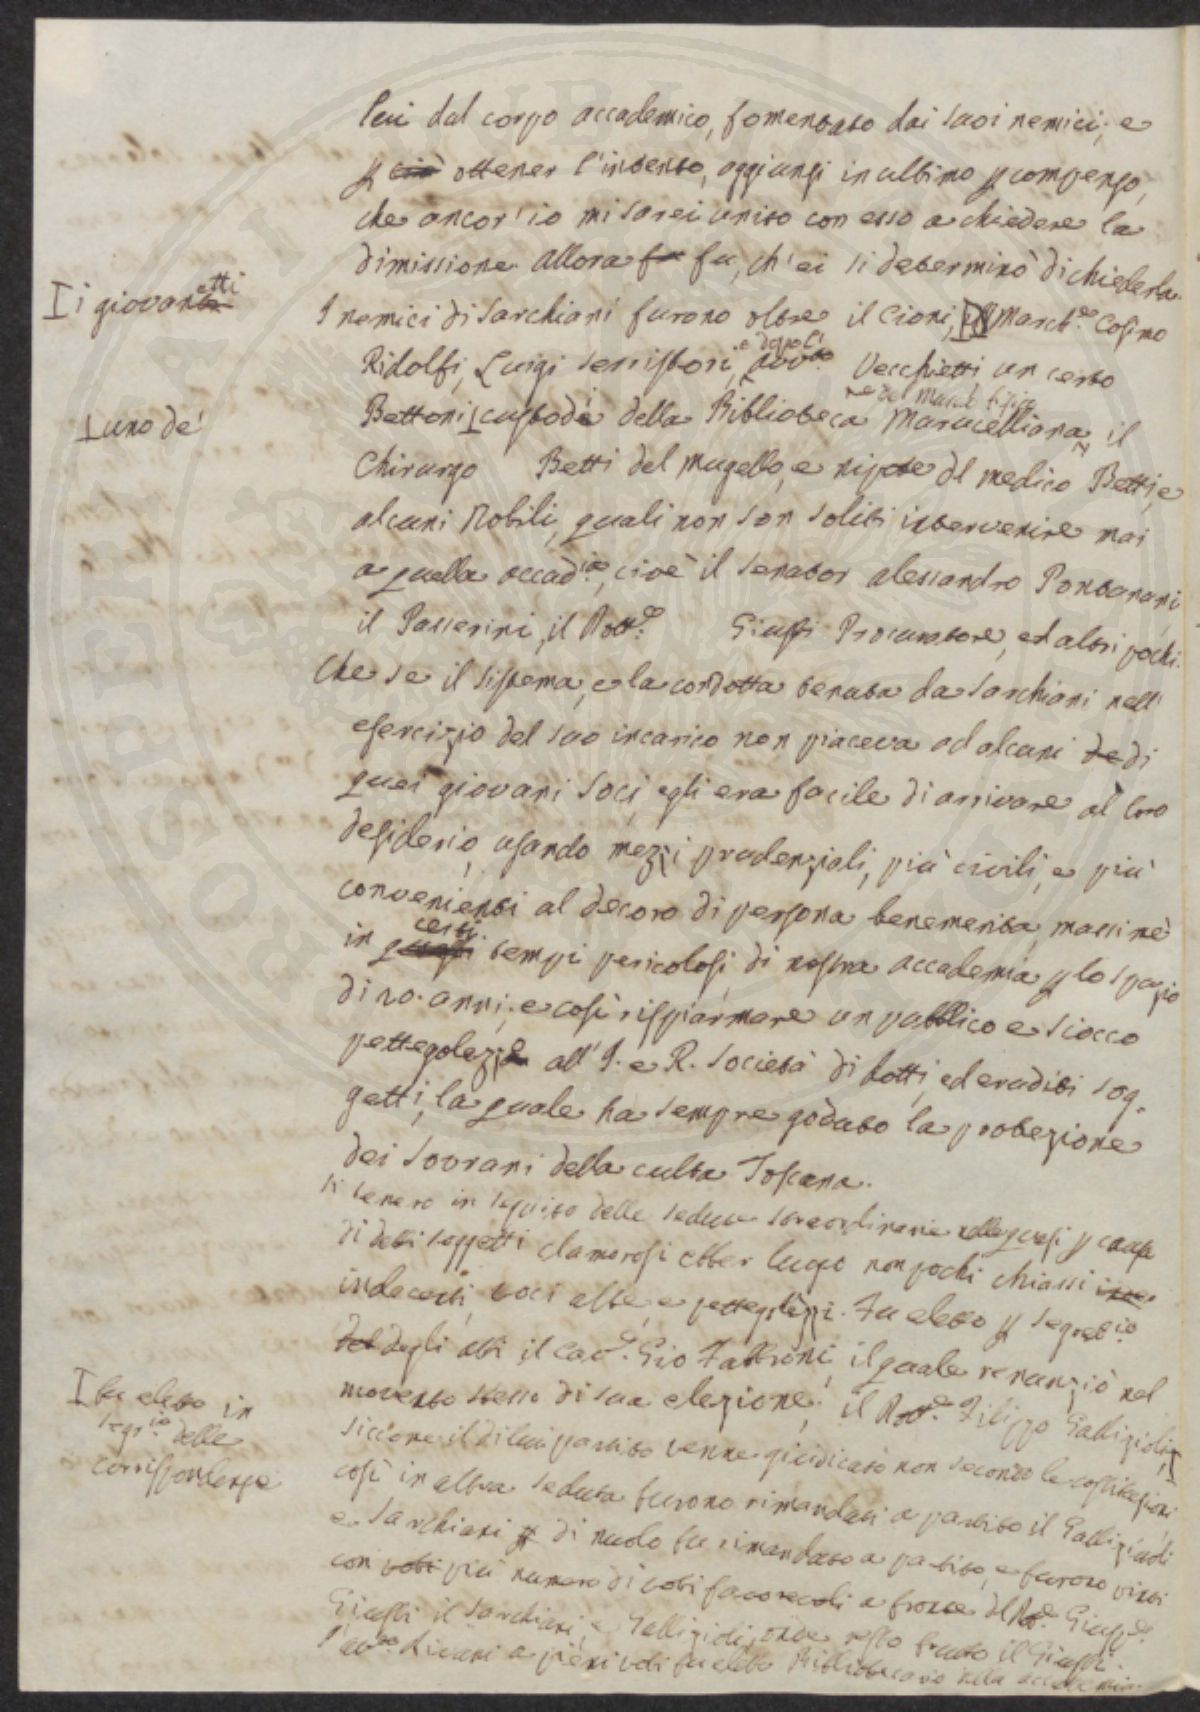 lui dal corpo accademico, fomentato dai suoi nemici; e
p ciò ottener l'intento, aggiunsi in ultimo p compenso,
che ancor'io mi sarei unito con esso a chiedere la
dimissione. allora fu fu, ch'ei si determinò di chiederla.
I i giovanetti
I nemici di Sarchiani furono oltre il Cioni, il March.e Cosimo
Ridolfi, Luigi Serristori, Vecchietti un certo
I uno de'
Bettoni custode della Biblioteca Marucelliana, il
Chirurgo Betti del Mugello, e nipote del medico Betti, e
alcuni Nobili, quali non son soliti intervenire mai
a quella accad.ia, cioè il Senator Alessandro Pontanari,
il Passerini, il Dott.e Giusti Procuratore, ed altri pochi.
Che se il sistema, e la condotta tenuta da Sarchiani nell'
esercizio del suo incarico non piaceva ad alcuni de di
quei giovani Soci, egli era facile di arrivare al loro
desiderio, usando mezzi prudenziali, più civili, e più
convenienti al decoro di persona benemerita, massime
certi
in questi tempi pericolosi, di nostra accademia p lo spazio
di 20. anni; e così risparmiare un pubblico e sciocco
pettegolezzo all'I. e R. Società di dotti, ed eruditi sog-
getti, la quale ha sempre goduto la protezione
dei Sovrani della culta Toscana.
Si tenero in seguito delle sedute straordinarie nelle quali p causa
di detti soggetti clamorosi ebber luogo non pochi chiassi
indecenti, voci alte, e pettegolezzi. Fu eletto p segret.io
del degli atti il Cav.e Gio Fabbroni, il quale renunziò nel
momento stesso di sua elezione; il Dott.e Filippo Gallizioli, I
I fu eletto in
segr.io delle
corrispondenze
siccome il di lui partito venne giudicato non secondo le costituzioni,
così in altra seduta furono rimandati a partito il Gallizioli
e Sarchiani p di nuovo fu rimandato a partito, e furono vinti
con voti più numero di voti favorevoli a fronte del Dott.e Giusep.e
Giusti il Sarchiani, e Gallizioli, onde restò fuori il Giusti.
l'avv.to Rivani a pieni voti fu eletto Bibliotecario della accademia.